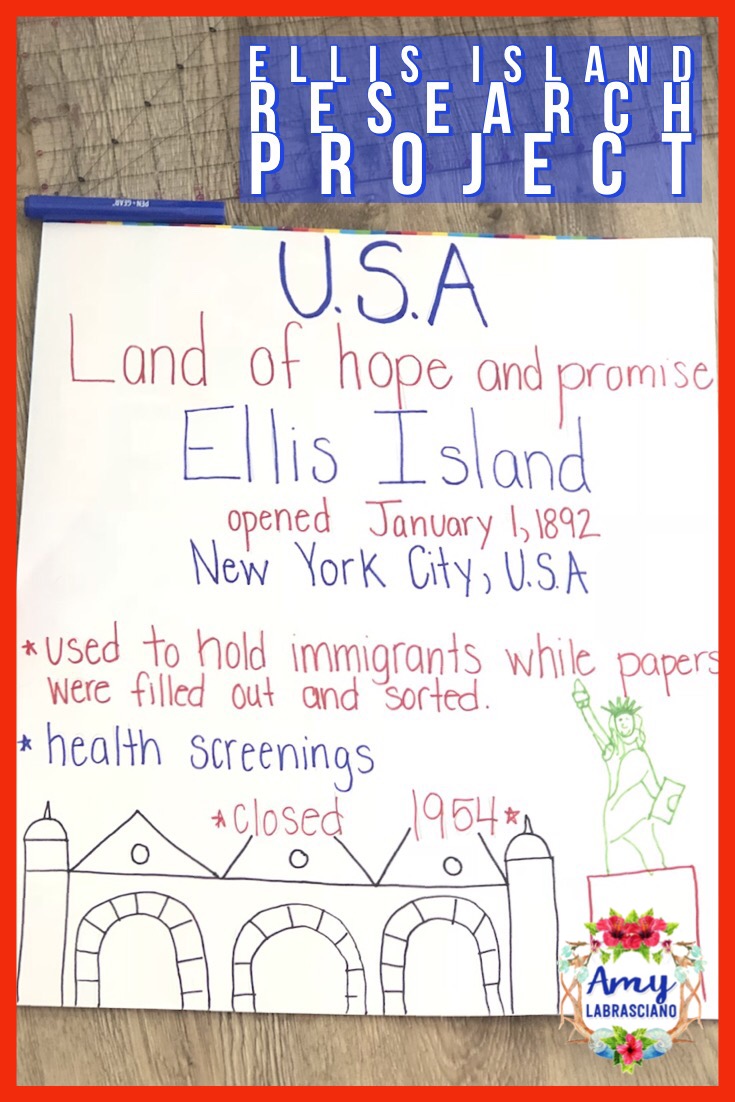 ELLIS ISLAND
RESEARCH
PROJECT
PEN+GEAR
U.S.A
Land of hope and promise
Ellis Island
opened January 1, 1892
New York City, U.S.A
*used to hold immigrants while papers
were filled out and sorted.
*health screenings
*closed 1954*
Amy
LABRASCIANO